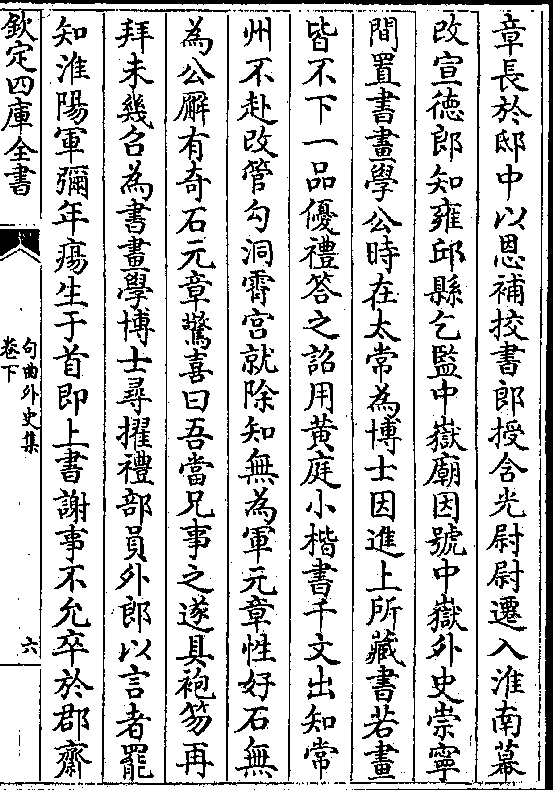 章長於邸中以恩補挍書郎授含光尉尉遷入淮南幕
改宣德郎知雍邱縣乞監中嶽廟因號中嶽外史崇寧
間置書畫學公時在太常為博士因進上所藏書若畫
皆不下一品優禮答之詔用黃庭小楷書千文出知常
州不赴改管勾洞霄宮就除知無為軍元章性好石無
為公廨有奇石元章驚喜曰吾當兄事之遂具袍笏再
拜未幾召為書畫學博士尋擢禮部員外郎以言者罷
知淮陽軍彌年瘍生于首即上書謝事不允卒於郡齋
欽定四庫全書
句曲外史集
卷下
六